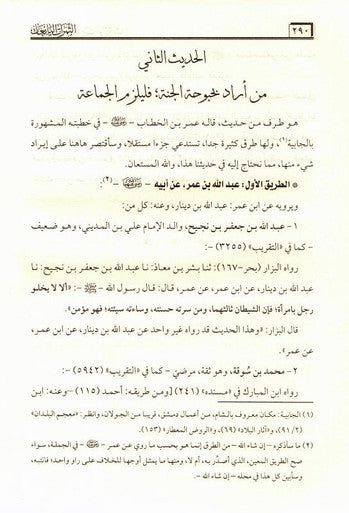 ٢٩٠
الحديث الثاني
من أراد بحبوحة الجنة؛ فليلزم الجماعة
هو طرف من حديث، قاله عمر بن الخطاب - ﷺ - في خطبته المشهورة
بالجابية(١)، ولها طرق كثيرة جدا، تستدعي جزءا مستقلا، وسأقتصر هاهنا على إيراد
شيء منها، مما نحتاج إليه في حديثنا هذا، والله المستعان.
* الطريق الأول: عبد الله بن عمر، عن أبيه - (٢):
ويرويه عن ابن عمر: عبد الله بن دينار، وعنه: كل من:
١ - عبد الله بن جعفر بن نجيح، والد الإمام علي بن المديني، وهو ضعيف
- كما في «التقريب» (٣٢٥٥) -:
رواه البزار (بحر-١٦٧): ثنا بشر بن معاذ: نا عبد الله بن جعفر بن نجيح: نا
عبد الله بن دينار، عن ابن عمر، عن عمر، قال: قال رسول الله - ﷺ -: «ألا لا يخلو
رجل بامرأة؛ فإن الشيطان ثالثهما، ومن سرته حسنته، وساءته سيئته؛ فهو مؤمن».
قال البزار: «وهذا الحديث قد رواه غير واحد عن عبد الله بن دينار، عن ابن عمر،
عن عمر».
٢ - محمد بن سوقة، وهو ثقة، مرضي - كما في «التقريب» (٥٩٤٢) -:
رواه ابن المبارك في «مسنده» (٢٤١) [ومن طريقه: أحمد (١١٥) -وعنه: ابن
(١) الجابية: مكان معروف بالشام، من أعمال دمشق، قريبا من الجولان، وانظر: «معجم البلدان»
(٢/ ٩١)، و«آثار البلاد» (٦٩)، و«الروض المعطار» (١٥٣).
(٢) ما سأذكره - إن شاء الله - من الطرق إنما هو بحسب ما روي عن عمر - - في الجملة، سواء
صح الطريق المعين، الذي أصدّر به، أم لا، ومنها ما يمثل أوجها للخلاف على راو واحد؛ فانتبه،
وسأبين كل هذا في محله - إن شاء الله -.